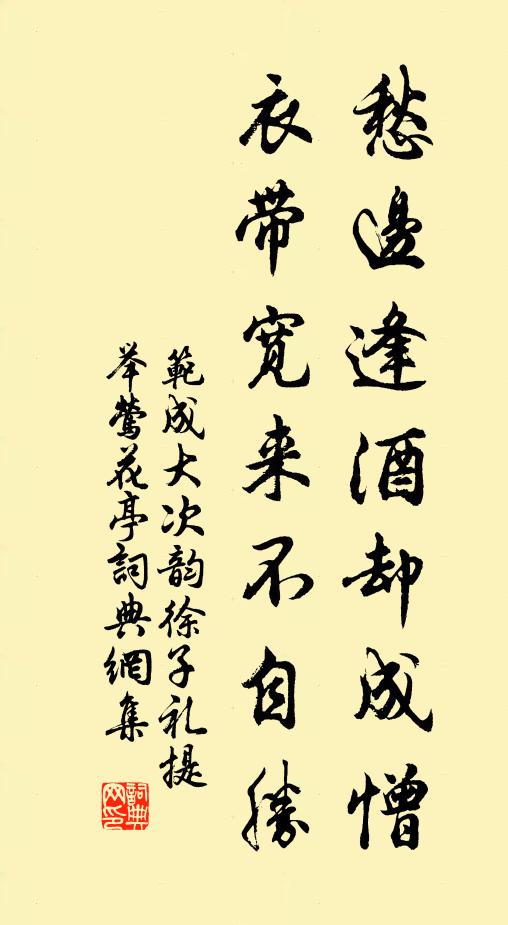 愁邊逢酒却成憎
衣帶寬来不自勝
範成大次韵徐子礼提
举鶯花亭詞典網集
詞典网印